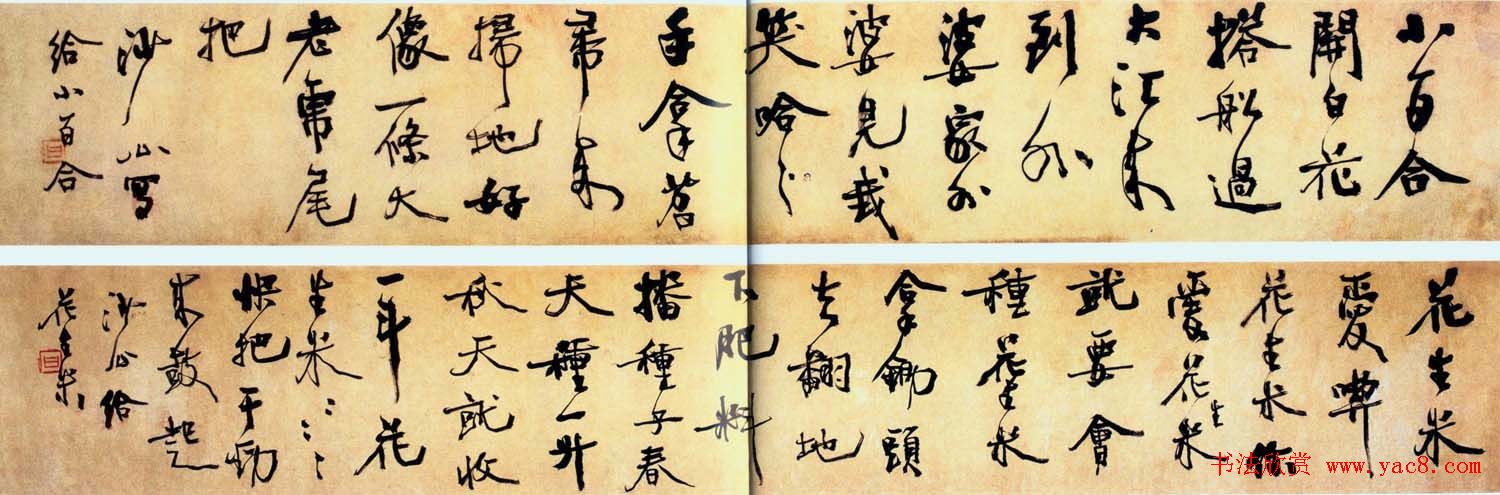 小百合
開白花
搭船過
大江来
到外
婆家外
婆見我
笑哈々
手拿着
帚来
掃地好
像一條大
老虎尾
把
沙山寫
给小百合
花生米
愛
花生米你
愛花生米
就要會
種花生米
拿鋤頭
去翻地
下肥料
播種子春
天種一升
秋天就收
一斗花
生米：：：
快把干勁
来鼓起
沙山给
花生米
书法欣赏 www.yac8.com